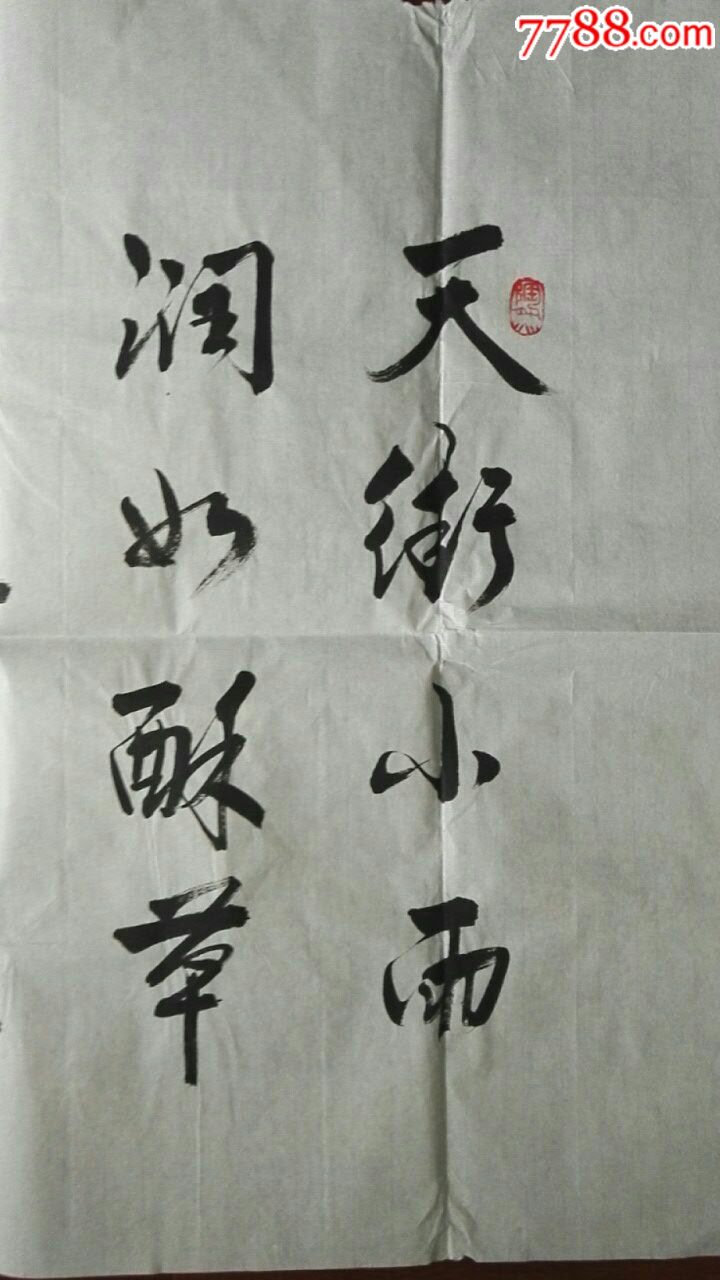 7788.com
天街小雨
润如酥草